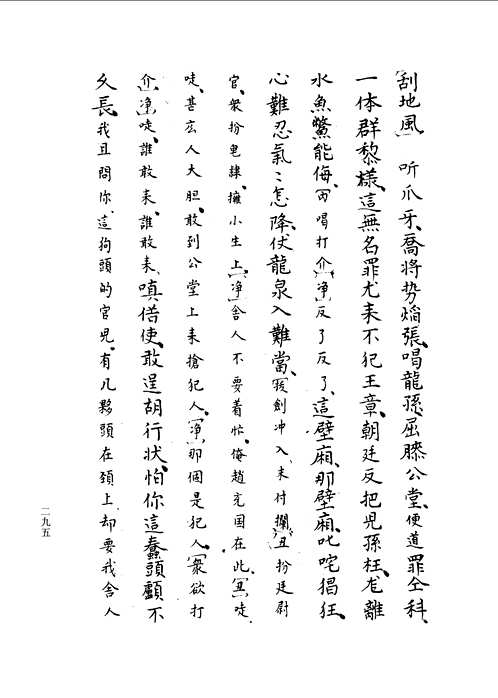 刮地風　听爪牙、喬將势焰張、喝龍孫屈膝公堂、便道罪仝科、
一体群黎樣、這無名罪尤来不犯王章、朝廷反把児孫枉、尨離
水魚鱉能侮、内喝打介净反了反了、這壁廂、那壁廂、叱咤猖狂、
心難忍氣〻怎降、伏龍泉入難當、拔劍冲入、末付攔、丑扮廷尉
官、衆扮皂隸、擁小生上、净舍人不要着忙、俺趙充国在此、丑唗、
唗、甚広人大胆、敢到公堂上来搶犯人、净那個是犯人、衆欲打
介、净唗、誰敢来、誰敢来、嗔偌使、敢逞胡行状、怕你這蠢頭顱不
久長、我且問你、這狗頭的官児、有几夥頭在頚上、却要我舍人
二九五